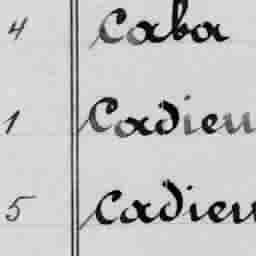 4 Caba
1 Cadieu
5 Cadieu